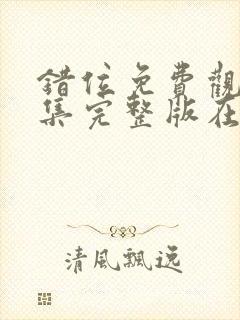 錯位免費觀
集完整版在
清風飄逸